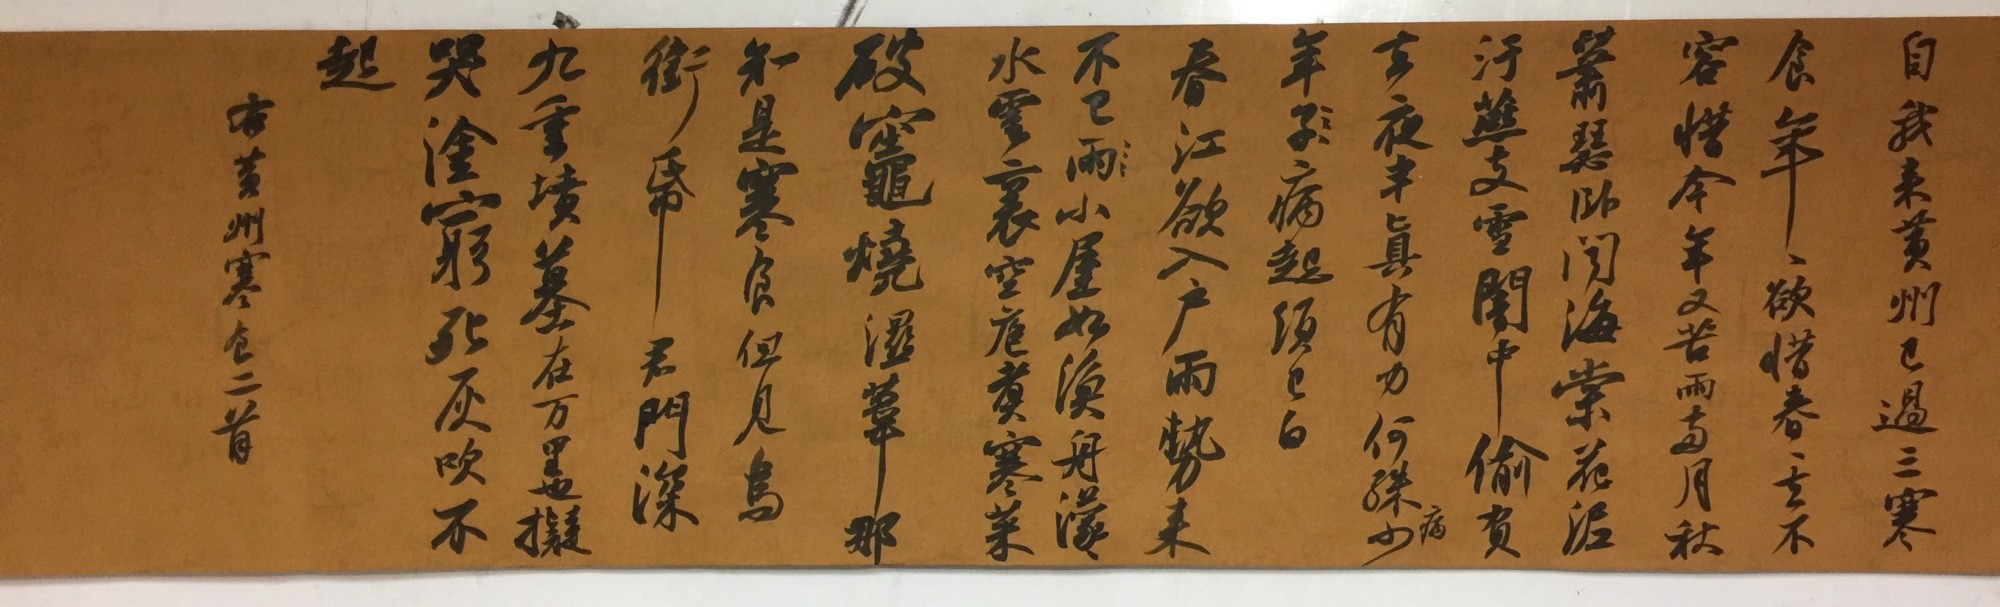 自我来黄州已過三寒
食年〻欲惜春〻去不
容惜今年又苦雨兩月秋
蕭瑟卧聞海棠花泥
汙燕支雪闇中偷負
去夜半真有力何殊少病
年子病起須已白
春江欲入户雨勢来
不已雨小屋如漁舟濛〻
水雲裏空庖煮寒菜
破竈燒濕葦那
知是寒食但見烏
銜帋君門深
九重墳墓在万里也擬
哭塗窮死灰吹不
起
右黄州寒食二首